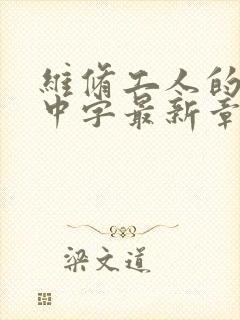 維脩工人的
中字最新章
梁文道